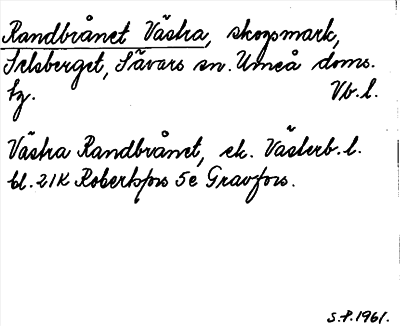 Randbrånet Västra, skogsmark,
Selsberget, Sävars sn. Umeå doms.
hg. Vb. l.
Västra Randbrånet, ek. Västerb. l.
bl. 21K Robertsfors 5e Gravfors.
S.P. 1961.